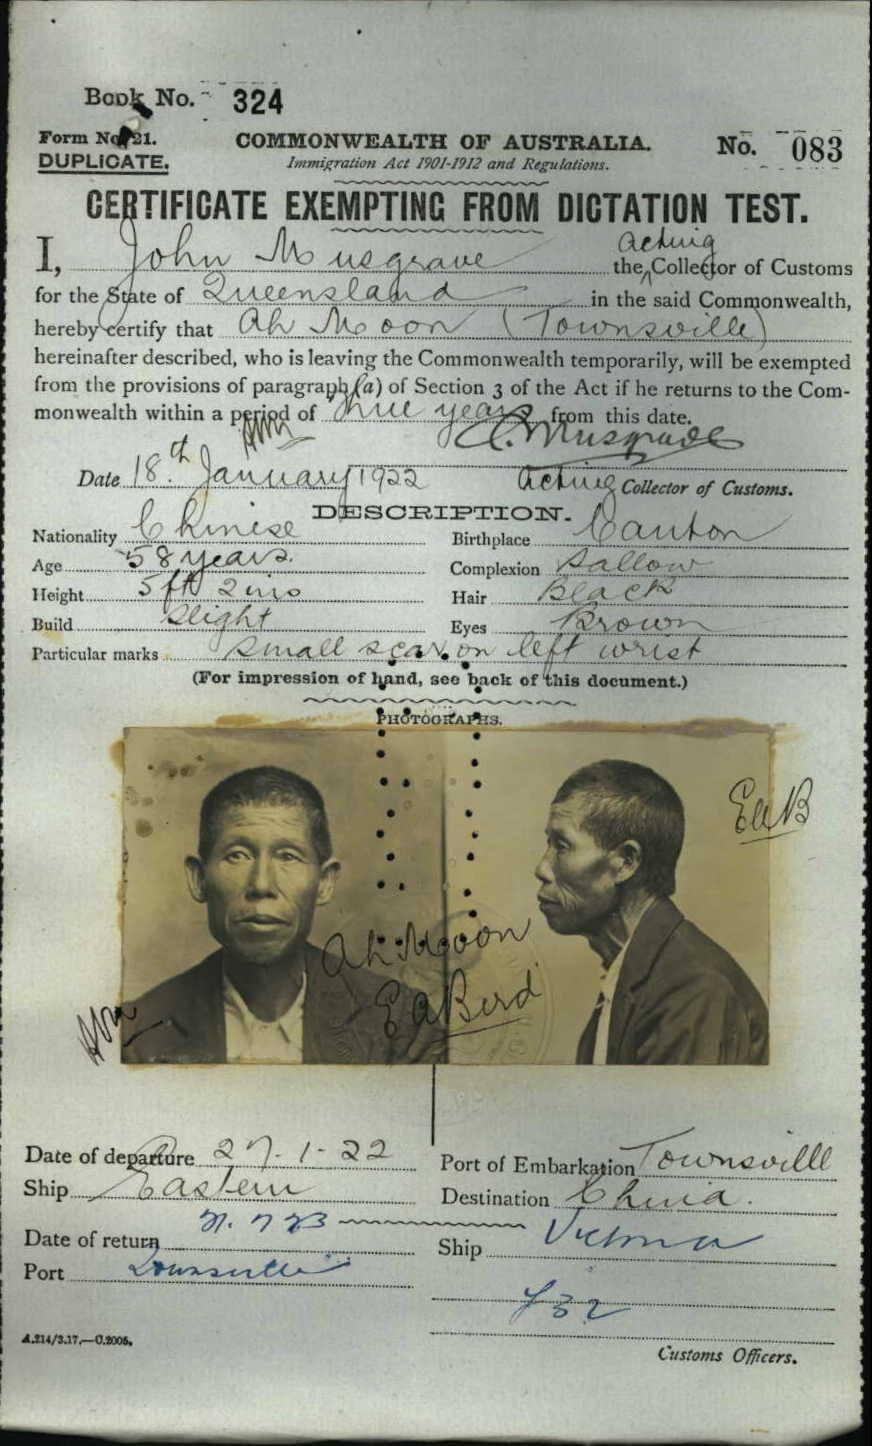 Book No. 324
Form No. 21.
DUPLICATE.
COMMONWEALTH OF AUSTRALIA.
Immigration Act 1901-1912 and Regulations.
No. 083
CERTIFICATE EXEMPTING FROM DICTATION TEST.
I, John Musgrave the Acting Collector of Customs
for the State of Queensland in the said Commonwealth,
hereby certify that Ah Moon (Townsville)
hereinafter described, who is leaving the Commonwealth temporarily, will be exempted
from the provisions of paragraph (a) of Section 3 of the Act if he returns to the Com-
monwealth within a period of three years from this date.
Musgrave
Date 18th January 1922 Acting Collector of Customs.
DESCRIPTION.
Nationality Chinese Birthplace Canton
Age 58 years. Complexion Sallow
Height 5 ft 2 ins Hair Black
Build Slight Eyes Brown
Particular marks small scar on left wrist
(For impression of hand, see back of this document.)
PHOTOGRAPHS.
EAB
Ah Moon
EA Bird
Date of departure 27-1-22 Port of Embarkation Townsville
Ship Eastern Destination China.
Date of return Ship Victoria
Port Townsville
A.214/3.17.—C.2005.
Customs Officers.